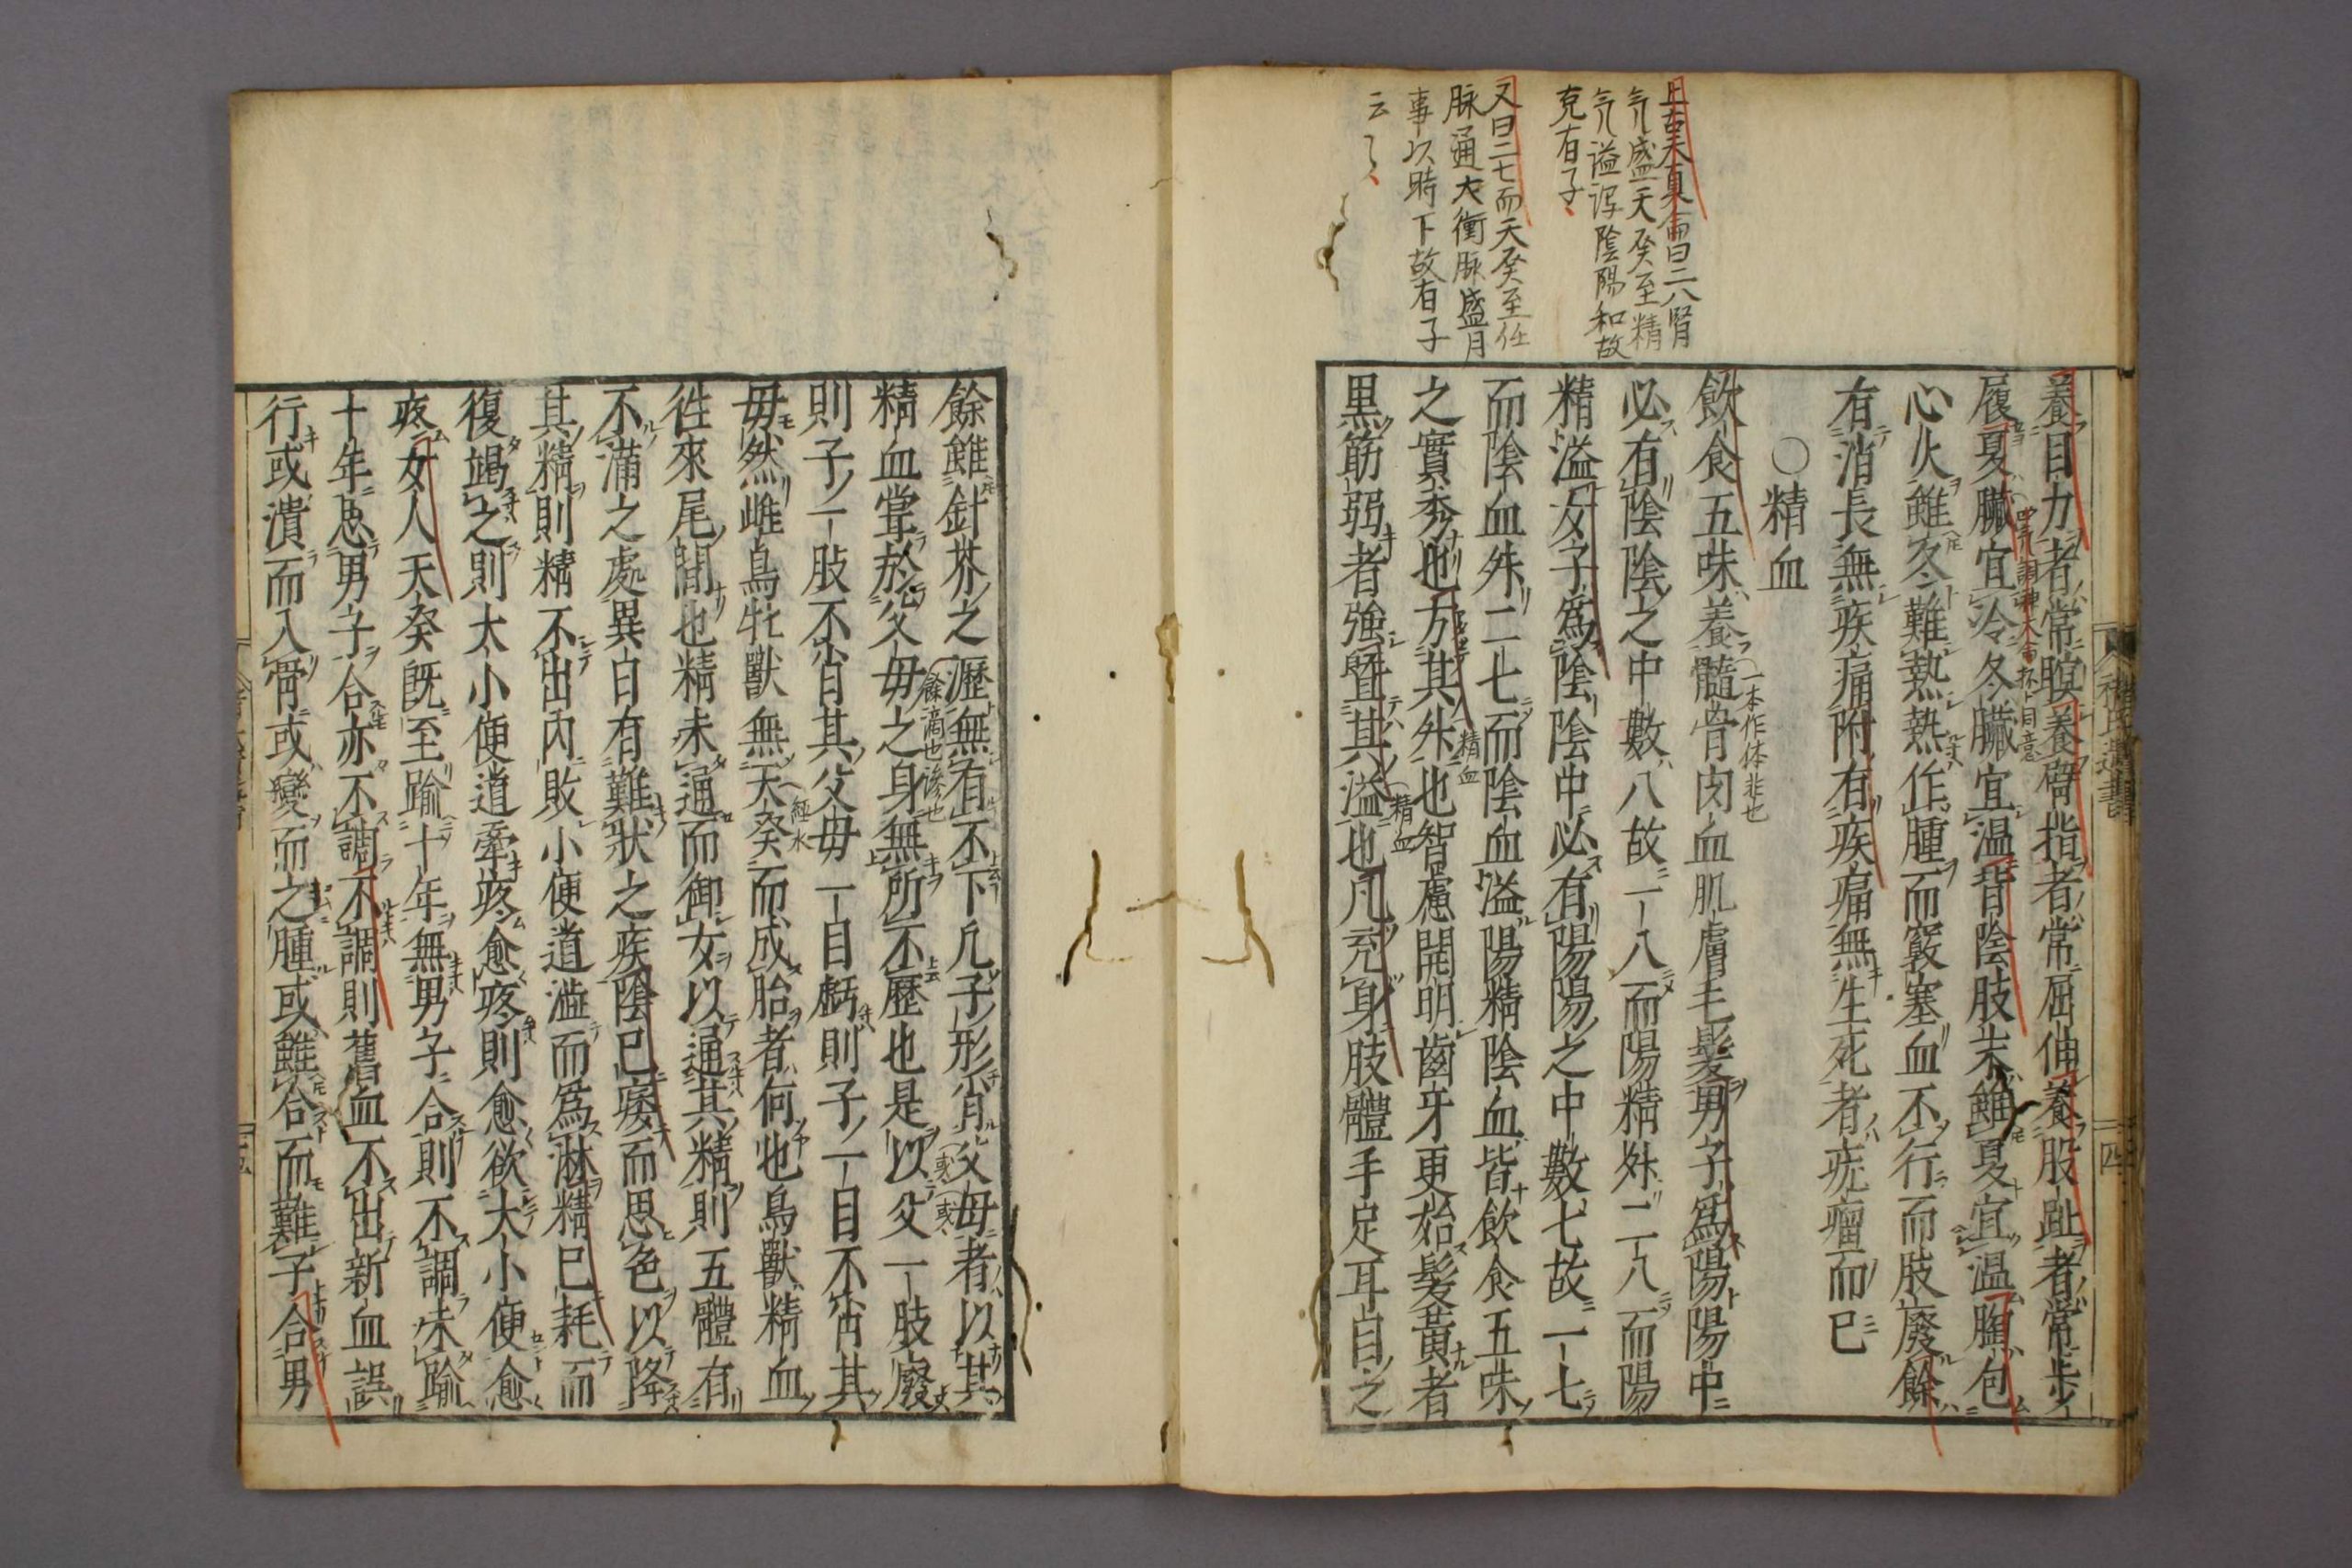 上古天真論曰二八腎
气盛天癸至精
气溢泻陰陽和故
克有子
又曰二七而天癸至任
脉通大衝脉盛月
事以時下故有子
云〻
養目力者常瞑養臂指者常屈伸養股趾者常步
履夏臟宜冷冬臟宜温背陰肢末雖夏宜温胸包
心火雖冬難熱熱作腫而竅塞血不行而肢廢餘
有消長無疾痛附有疾痛無生死者疣瘤而已
○精血
飲食五味養髓骨肉血肌膚毛髮男子爲陽陽中
一本作体非也
必有陰陰之中數八故一八而陽精升二八而陽
精溢女子爲陰陰中必有陽陽之中數七故一七
而陰血升二七而陰血溢陽精陰血皆飲食五味
之實秀也方其升也智慮開明齒牙更始髮黃者
精血
黒筋弱者強曁其溢也凡充身肢體手足耳目之
精血
餘雖針芥之瀝無有不下凡子形肖父母者以其
餘滴也滲也
精血嘗於父母之身無所不歷也是以父一肢廢
則子一肢不肖其父母一目虧則子一目不肖其
毋然雌鳥牝獸無天癸而成胎者何也鳥獸精血
經水
徃來尾間也精未通而御女以通其精則五體有
不滿之處異日有難狀之疾陰已痿而思色以降
其精則精不出内敗小便道澁而爲淋精已耗而
復竭之則大小便道牽疼愈疼則愈欲大小便愈
疼女人天癸既至踰十年無男子合則不調未踰
十年思男子合亦不調不調則舊血不出新血誤
行或潰而入骨或變而之腫或雖合而難子合男
四